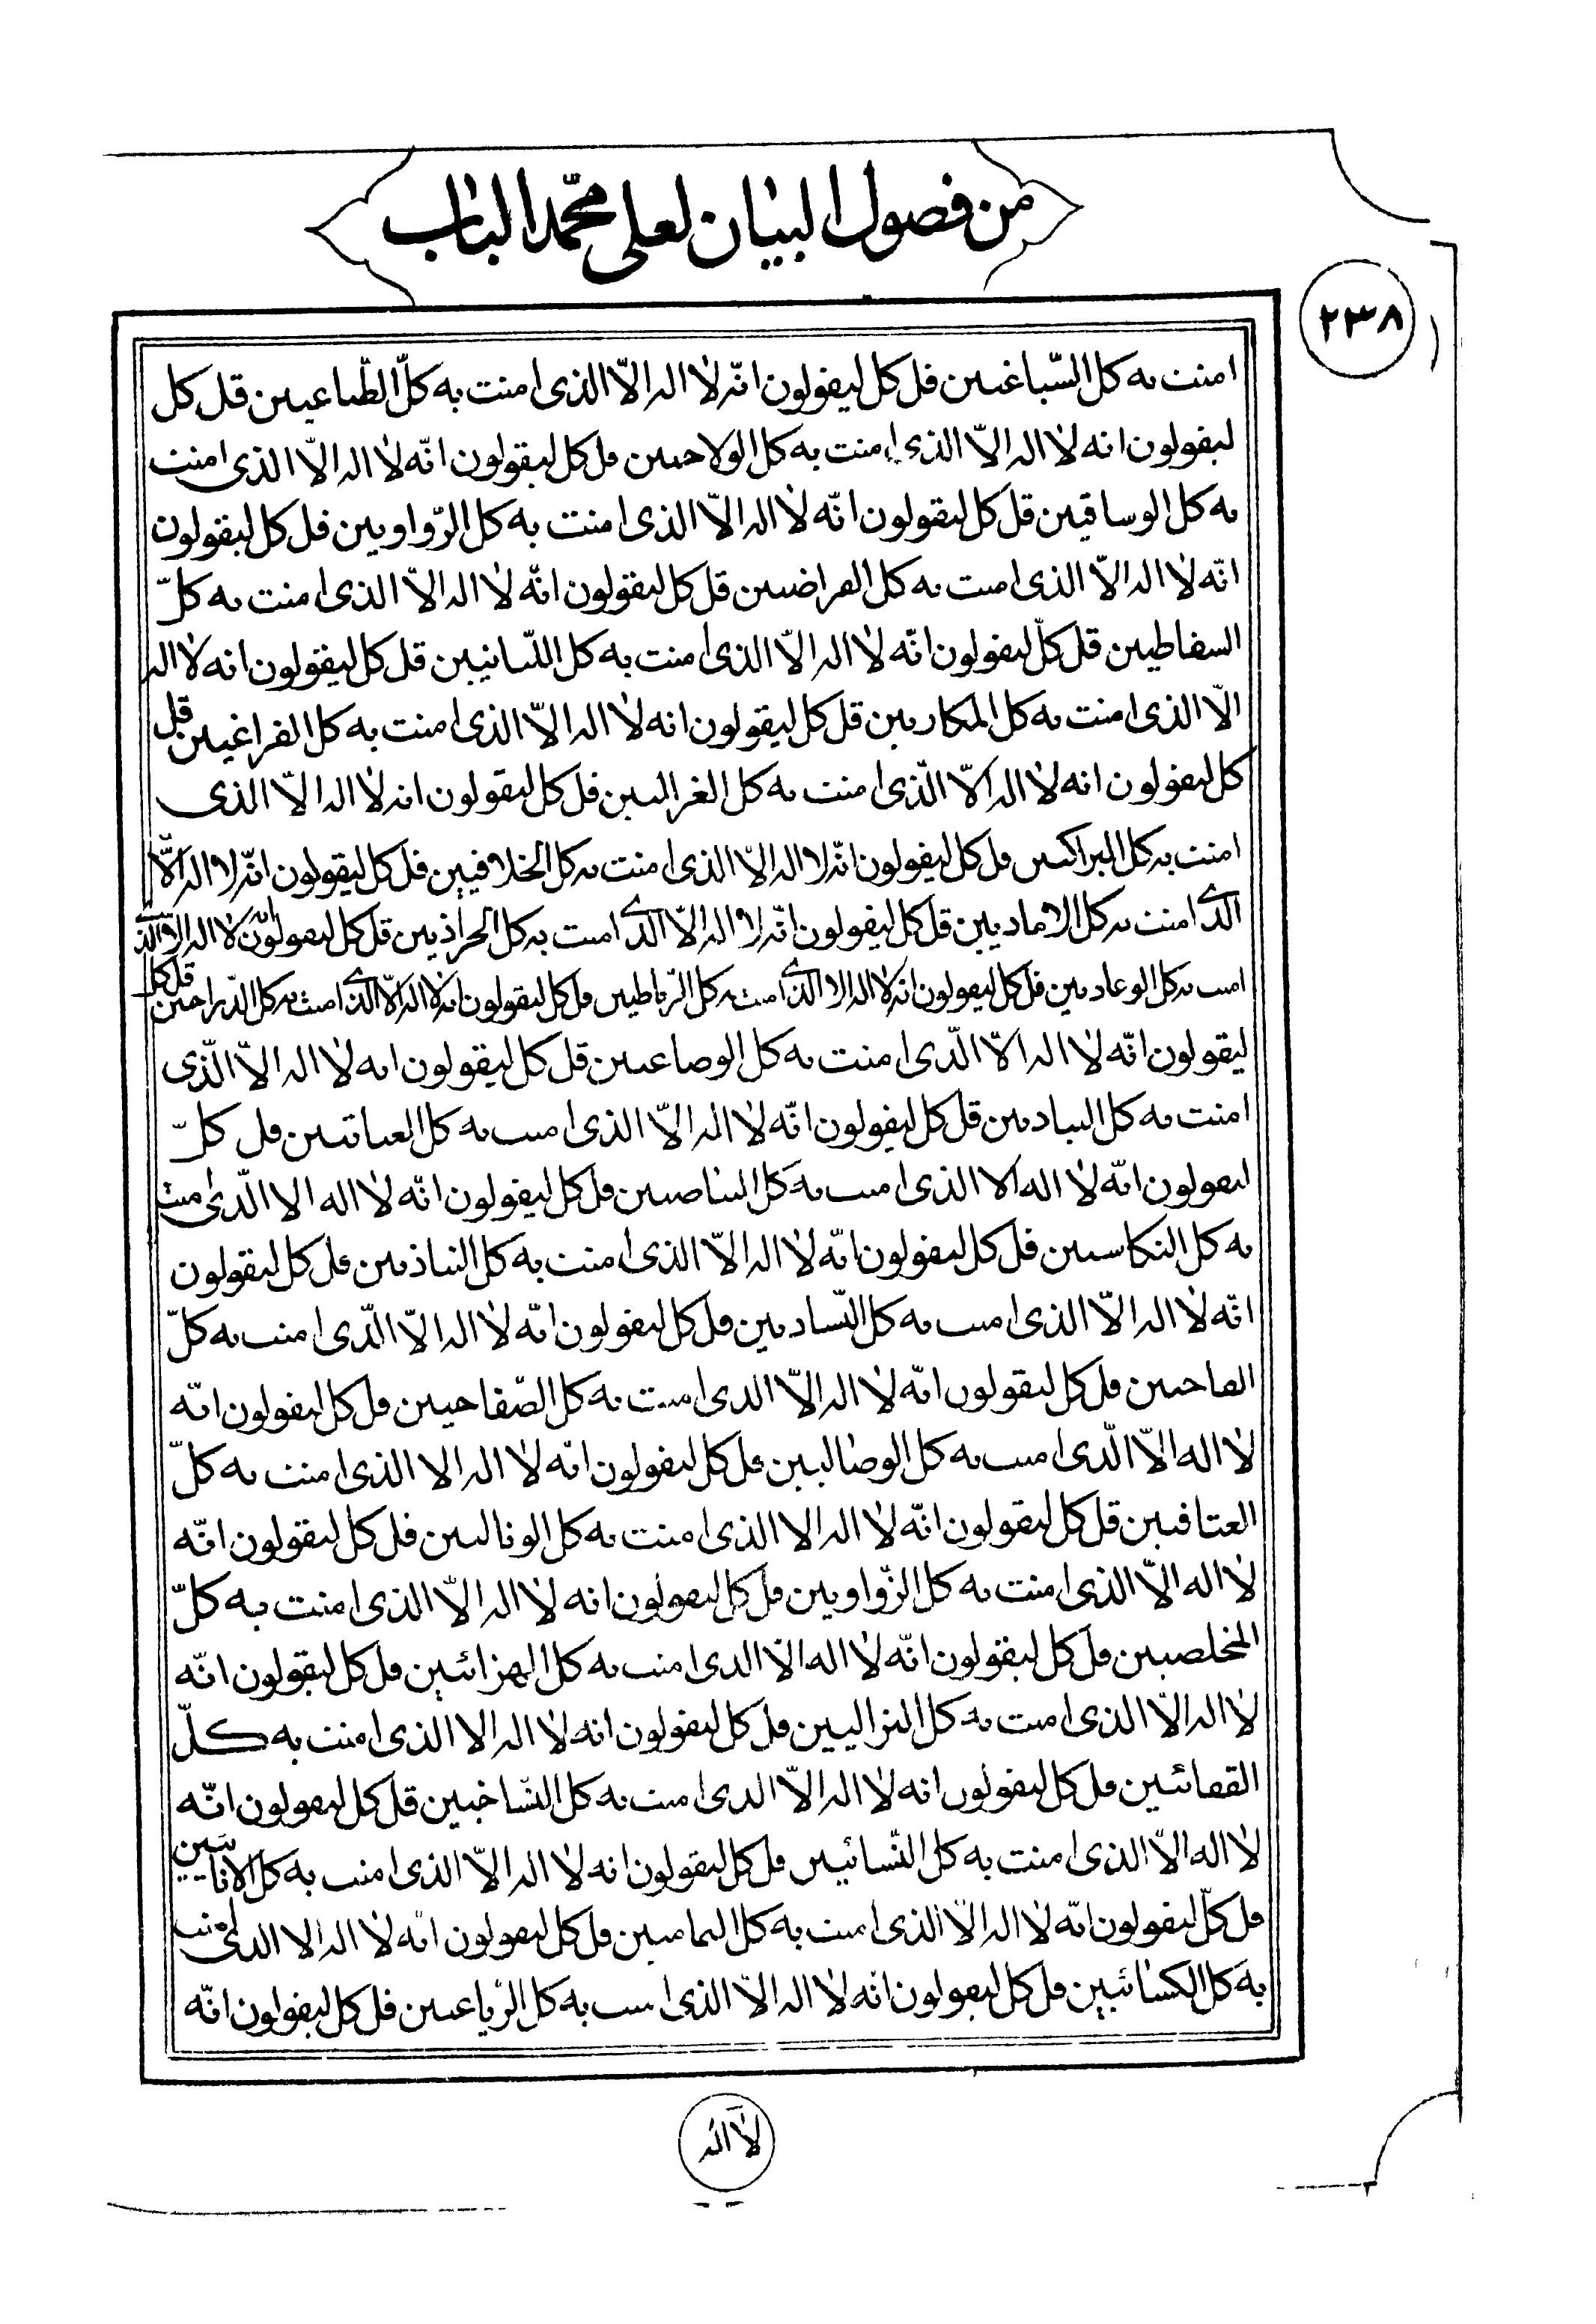 من فصول البيان لعلى محمد الباب
٢٣٨
امنت به كل السباغيين قل كل ليقولون انّه لا اله الّا الذى امنت به كلّ الطباعيين قل كل
ليقولون انه لا اله الّا الذى امنت به كل الولاحيين قل كل ليقولون انّه لا اله الّا الذى امنت
به كل الوساقيين قل كل ليقولون انّه لا اله الّا الذى امنت به كل الرّواويين قل كل ليقولون
انّه لا اله الّا الذى امنت به كل القراضيين قل كل ليقولون انّه لا اله الّا الذى امنت به كلّ
السقاطيين قل كلّ ليقولون انّه لا اله الّا الذى امنت به كل اللّسانيين قل كل ليقولون انه لا اله
الّا الذى امنت به كل المكاريين قل كل ليقولون انه لا اله الّا الذى امنت به كل الفراغيين قل
كل ليقولون انه لا اله الّا الّذى امنت به كل الغراليين قل كل ليقولون انه لا اله الّا الذى
امنت به كل البراكيين قل كل ليقولون انّه لا اله الّا الذى امنت به كل الخلافيين قل كل ليقولون انّه لا اله الّا
الذى امنت به كل الاماديين قل كل ليقولون انّه لا اله الّا الذى امنت به كل الحراذيين قل كل ليقولون انّه لا اله الّا الذى
امنت به كل الوعاديين قل كل ليقولون انه لا اله الا الذى امنت به كل الرّباطيين قل كل ليقولون انه لا اله الّا الذى امنت به كل الدّراحيين قل كل
ليقولون انّه لا اله الّا الّذى امنت به كل الوصاعيين قل كل ليقولون انه لا اله الّا الّذى
امنت به كل البياديين قل كل ليقولون انّه لا اله الّا الذى امنت به كل العباتيين قل كلّ
ليقولون انّه لا اله الا الذى امنت به كل النناصيين قل كل ليقولون انّه لا اله الا الّذى امنت
به كل النكاسيين قل كل ليقولون انّه لا اله الّا الذى امنت به كل النباذيين قل كل ليقولون
انّه لا اله الّا الذى امنت به كل النّساديين قل كل ليقولون انّه لا اله الّا الّذى امنت به كلّ
القاحيين قل كل ليقولون انّه لا اله الّا الذى امنت به كل الصّفاحيين قل كل ليقولون انّه
لا اله الّا الّذى امنت به كل الوصاليين قل كل ليقولون انّه لا اله الا الذى امنت به كلّ
العتاقيين قل كل ليقولون انّه لا اله الا الذى امنت به كل الوناليين قل كل ليقولون انّه
لا اله الّا الذى امنت به كل الزّواويين قل كل ليقولون انه لا اله الّا الذى امنت به كلّ
المخلصيين قل كل ليقولون انّه لا اله الّا الذى امنت به كل الهزائيين قل كل ليقولون انّه
لا اله الّا الذى امنت به كل النزاليين قل كل ليقولون انه لا اله الا الذى امنت به كلّ
القفائيين قل كل ليقولون انه لا اله الّا الذى امنت به كل النّساخيين قل كل ليقولون انّه
لا اله الّا الذى امنت به كل النّسائيين قل كل ليقولون انه لا اله الّا الذى امنت به كل الاناسيين
قل كلّ ليقولون انّه لا اله الّا الذى امنت به كل اليماميين قل كل ليقولون انّه لا اله الا الذى امنت
به كل الكسائيين قل كل ليقولون انّه لا اله الّا الذى امنت به كل الرّباعيين قل كل ليقولون انّه
لا اله